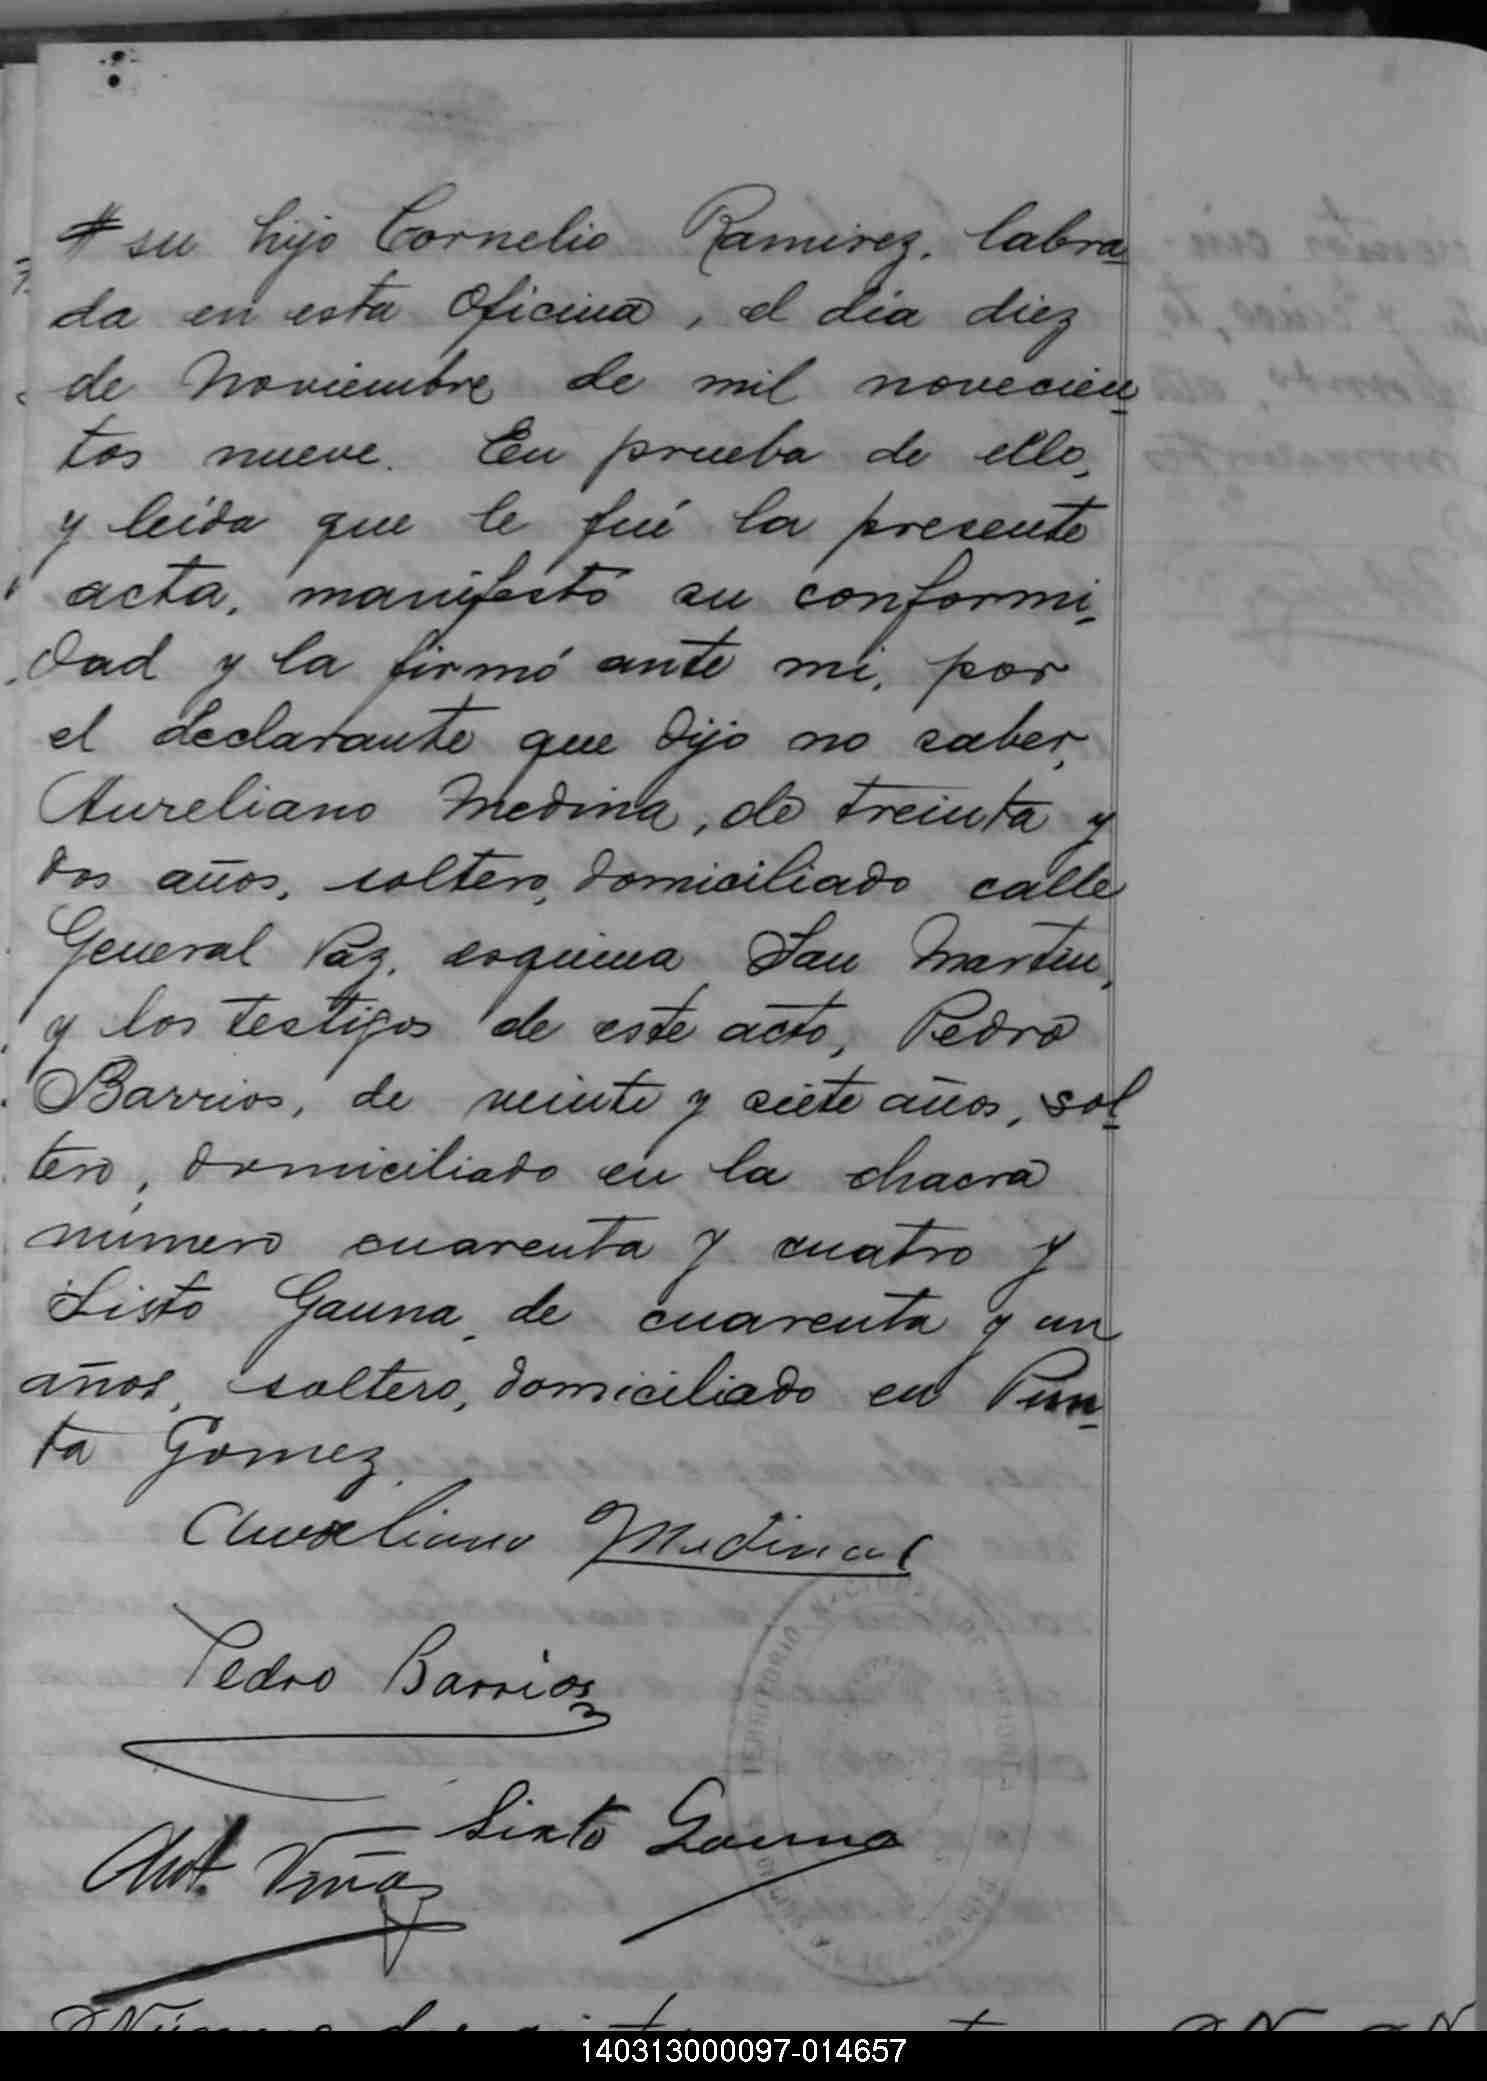 # su hijo Cornelio Ramirez, labra-
da en esta Oficina, el dia diez
de Noviembre de mil novecien-
tos nueve. En prueba de ello,
y leída que le fué la presente
acta, manifestó su conformi-
dad y la firmó ante mi, por
el declarante que dijo no saber,
Aureliano Medina, de treinta y
dos años, soltero, domiciliado calle
General Paz, esquina San Martin,
y los testigos de este acto, Pedro
Barrios, de veinte y siete años, sol-
tero, domiciliado en la chacra
número cuarenta y cuatro y
Sisto Gauna, de cuarenta y un
años, soltero, domiciliado en Pun-
ta Gomez.
Aureliano Medina
Pedro Barrios
Sixto Gauna
Ant. Viñas
TERRITORIO NACIONAL
140313000097-014657